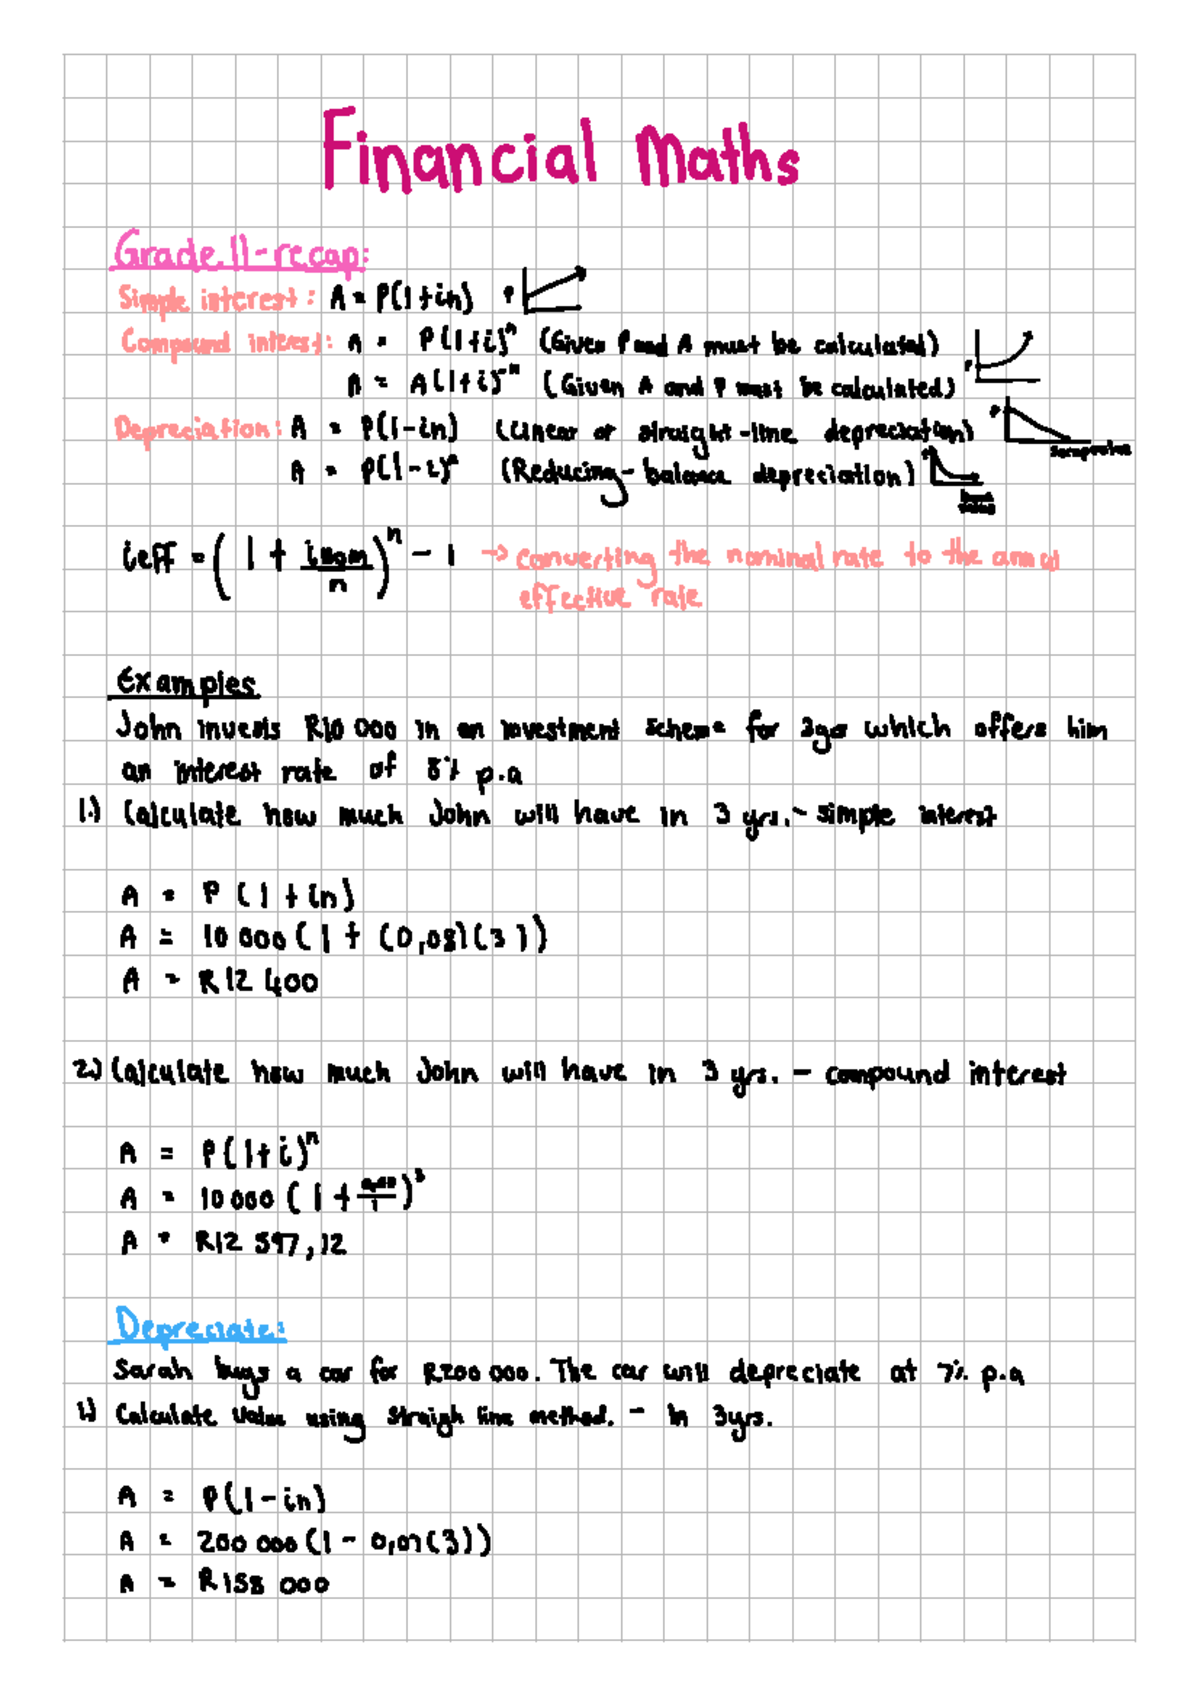 Financial Maths
Grade 11-recap:
Simple interest: A = P(1+in) P
Compound interest: A = P(1+i)^n (Given P and A must be calculated) P
A = A(1+i)^-n (Given A and P must be calculated)
Depreciation: A = P(1-in) (Linear or straight-line depreciation) P
A = P(1-i)^n (Reducing-balance depreciation)
ieff = (1 + inom/n)^n - 1 → converting the nominal rate to the annual
effective rate
Examples
John invests R10 000 in an investment scheme for 3yrs which offers him
an interest rate of 8% p.a
1.) Calculate how much John will have in 3 yrs. - simple interest
A = P(1+in)
A = 10 000(1 + (0,08)(3))
A = R12 400
2.) Calculate how much John will have in 3 yrs. - compound interest
A = P(1+i)^n
A = 10 000(1 + 0,08/1)^3
A = R12 597,12
Depreciate:
Sarah buys a car for R200 000. The car will depreciate at 7% p.a
1.) Calculate value using straigh line method. - in 3yrs.
A = P(1-in)
A = 200 000(1 - 0,07(3))
A = R158 000